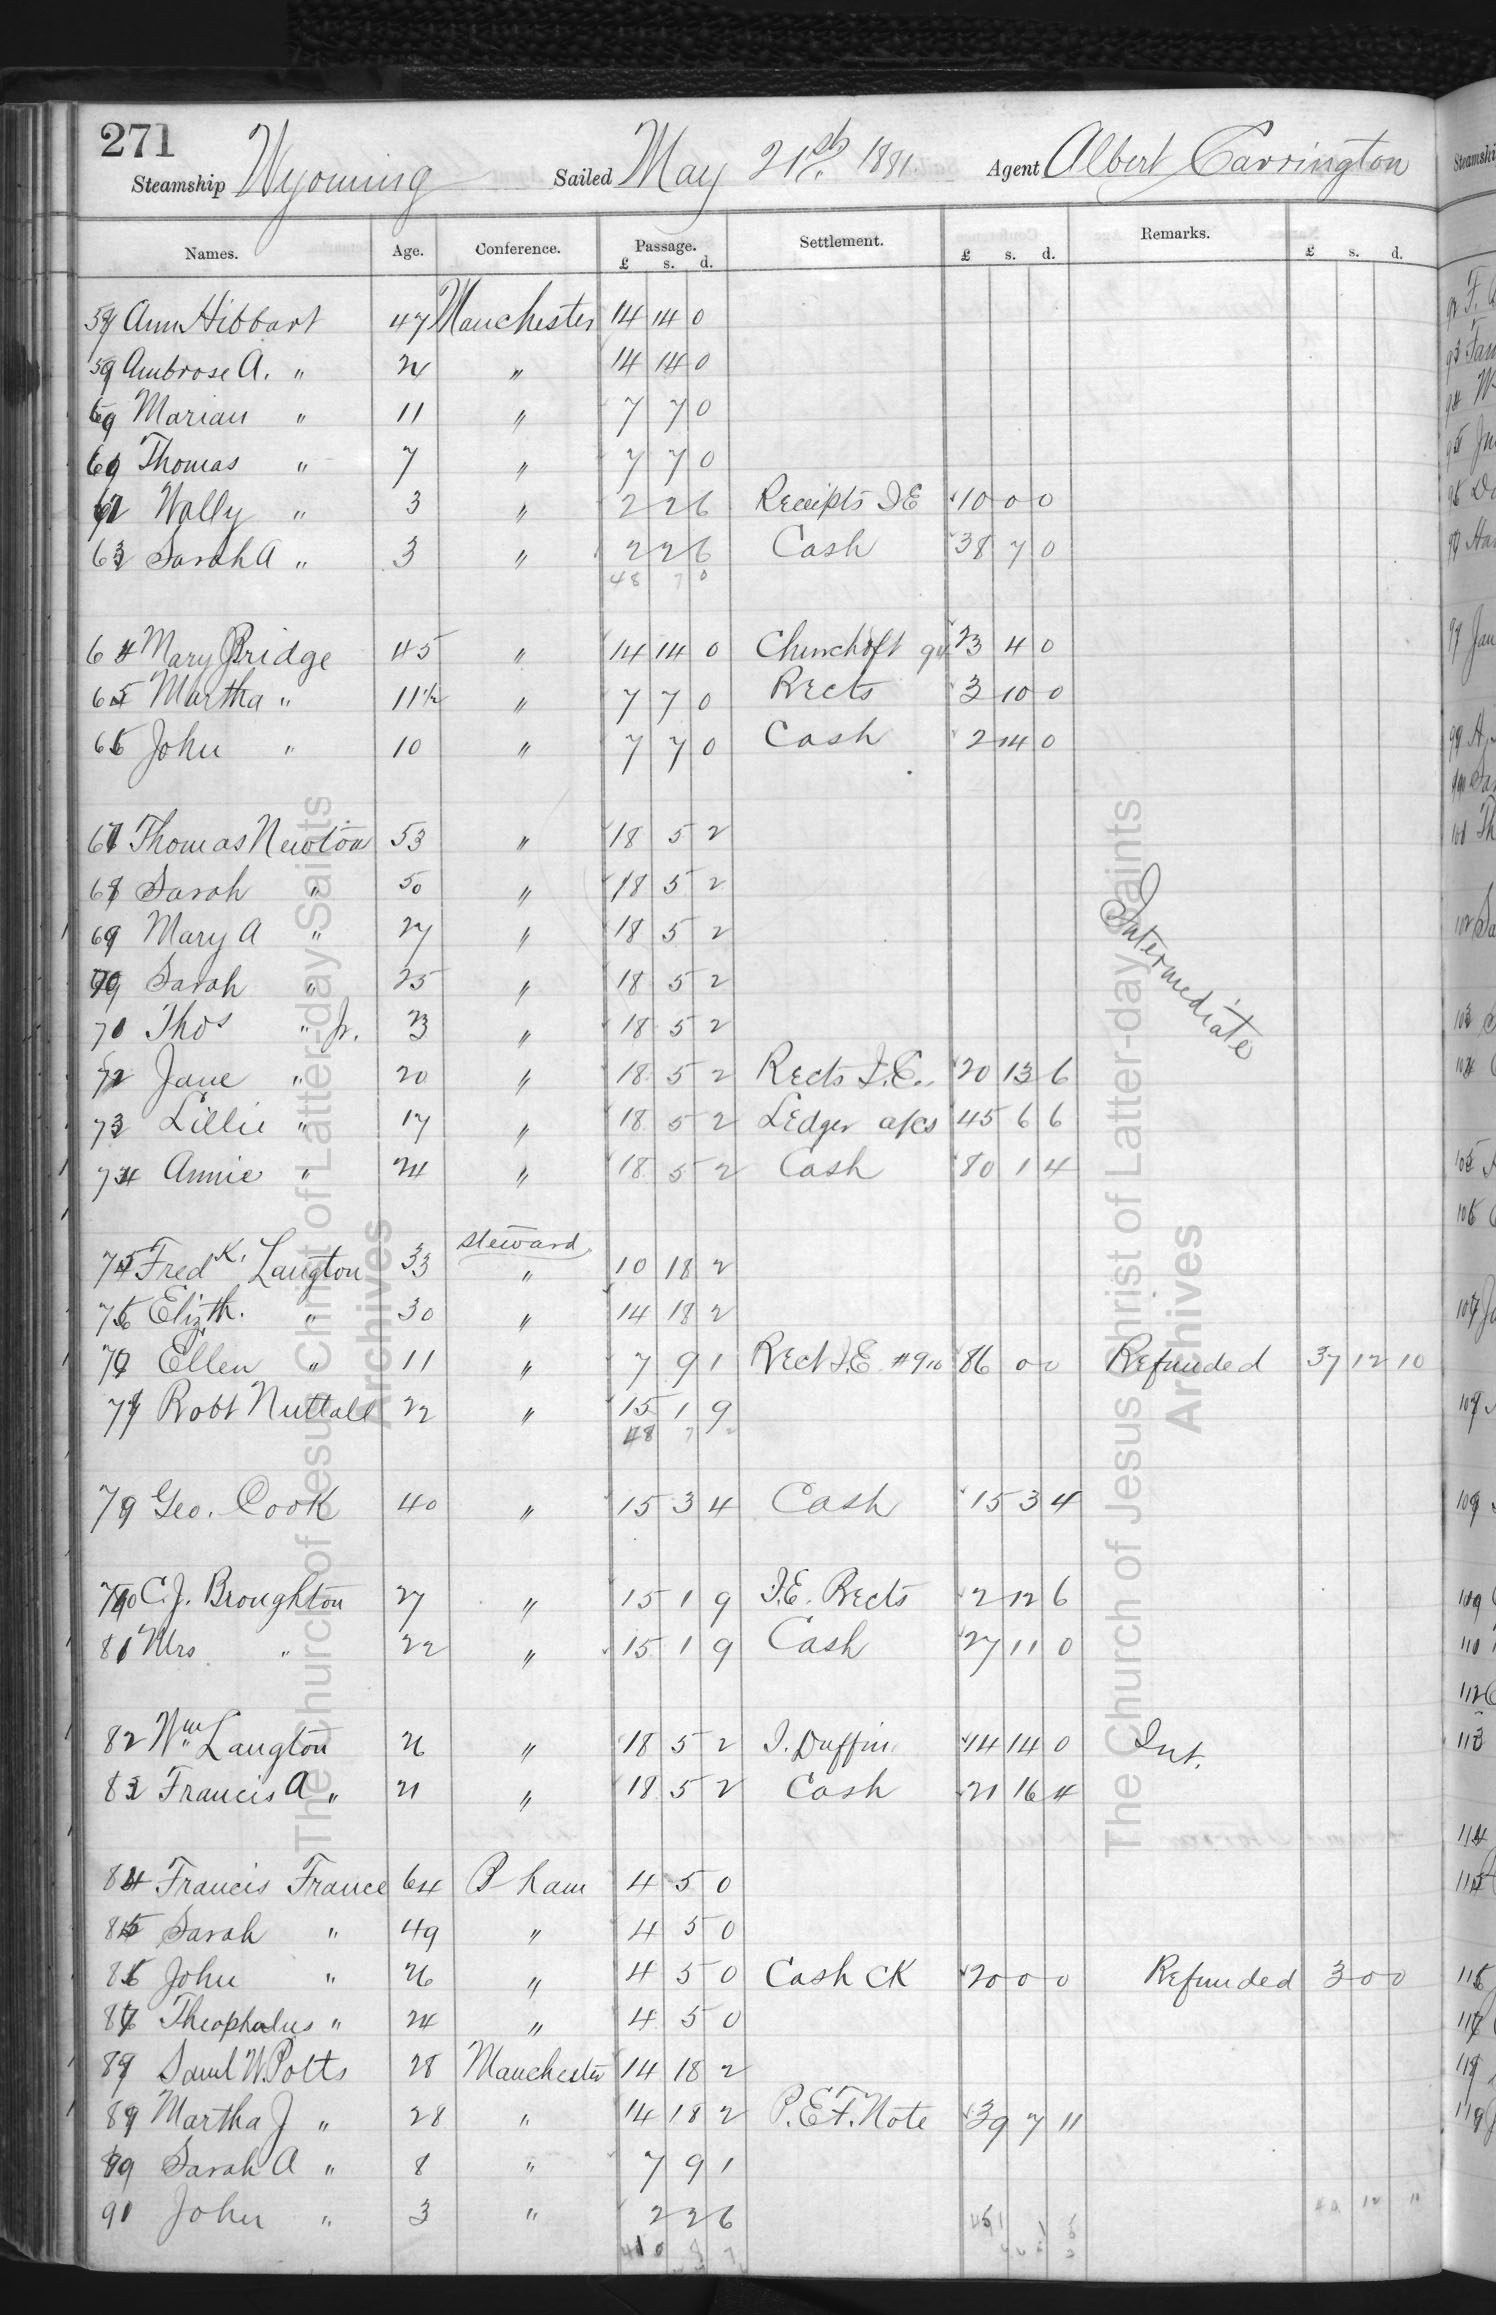 271
Steamship Wyoming Sailed May 21st. 1881. Agent Albert Carrington
Names. Age. Conference. Passage. Settlement. Remarks.
£ s. d. £ s. d. £ s. d.
Ann Hibbart 47 Manchester 14 14 0
Ambrose A. " 24 " 14 14 0
Marian " 11 " 7 7 0
Thomas " 7 " 7 7 0
Wally " 3 " 2 2 6 Receipts I E 10 0 0
63 Sarah A " 3 " 2 2 6 Cash 38 7 0
48 7 0
64 Mary Bridge 45 " 14 14 0 23 4 0
65 Martha " 11½ " 7 7 0 Rects 3 10 0
66 John " 10 " 7 7 0 Cash 2 14 0
67 Thomas Newton 53 " 18 5 2
68 Sarah " 50 " 18 5 2
69 Mary A " 27 " 18 5 2
70 Sarah " 25 " 18 5 2
71 Thos " Jr. 23 " 18 5 2
72 Jane " 20 " 18 5 2 Rects I.E. 20 13 6
73 Lillie " 17 " 18 5 2 Ledger a/cs 45 6 6
74 Annie " 24 " 18 5 2 Cash 80 1 4
Intermediate
steward
75 Fredk. Langton 33 " 10 18 2
76 Elizth. " 30 " 14 18 2
77 Ellen " 11 " 7 9 1 Rect I.E #910 86 0 0 Refunded 37 12 10
78 Robt Nuttall 22 " 15 1 9
48 7
79 Geo. Cook 40 " 15 3 4 Cash 15 3 4
80 C. J. Broughton 27 " 15 1 9 I.E. Rects 2 12 6
81 Mrs " 22 " 15 1 9 Cash 27 11 0
82 Wm Langton 26 " 18 5 2 J. Duffin 14 14 0 Int.
83 Francis A " 21 " 18 5 2 Cash 21 16 4
84 Francis France 64 B ham 4 5 0
85 Sarah " 49 " 4 5 0
86 John " 26 " 4 5 0 Cash CK 20 0 0 Refunded 3 0 0
87 Theophalus " 24 " 4 5 0
88 Saml W. Potts 28 Manchester 14 18 2
89 Martha J " 28 " 14 18 2 P.E.F. Note 39 7 11
90 Sarah A " 8 " 7 9 1
91 John " 3 " 2 2 6
The Church of Jesus Christ of Latter-day Saints
Archives
The Church of Jesus Christ of Latter-day Saints
Archives